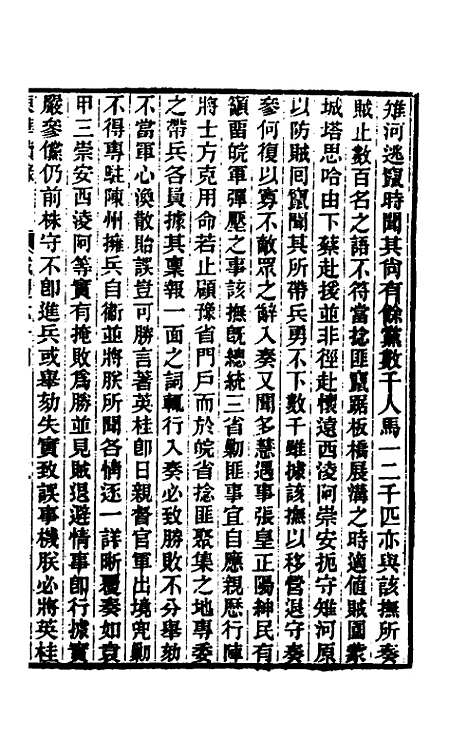 雉河逃竄時聞其尚有餘黨數千人馬一二千匹亦與該撫所奏
賊止數百名之語不符當捻匪竄踞板橋展溝之時適值賊圍蒙
城塔思哈由下蔡赴援並非徑赴懷遠西淩阿崇安扼守雉河原
以防賊回竄聞其所帶兵勇不下數千雖據該撫以移營退守奏
參何復以寡不敵眾之辭入奏又聞多慧遇事張皇正陽紳民有
籲留皖軍彈壓之事該撫旣總統三省勦匪事宜自應親歷行陣
將士方克用命若止顧豫省門戶而於皖省捻匪聚集之地專委
之帶兵各員據其稟報一面之詞輒行入奏必致勝敗不分舉劾
不當軍心渙散貽誤豈可勝言著英桂卽日親督官軍出境兜勦
不得專駐陳州擁兵自衞並將朕所聞各情逐一詳晰覆奏如袁
甲三崇安西淩阿等實有掩敗爲勝並見賊退避情事卽行據實
嚴參儻仍前株守不卽進兵或舉劾失實致誤事機朕必將英桂